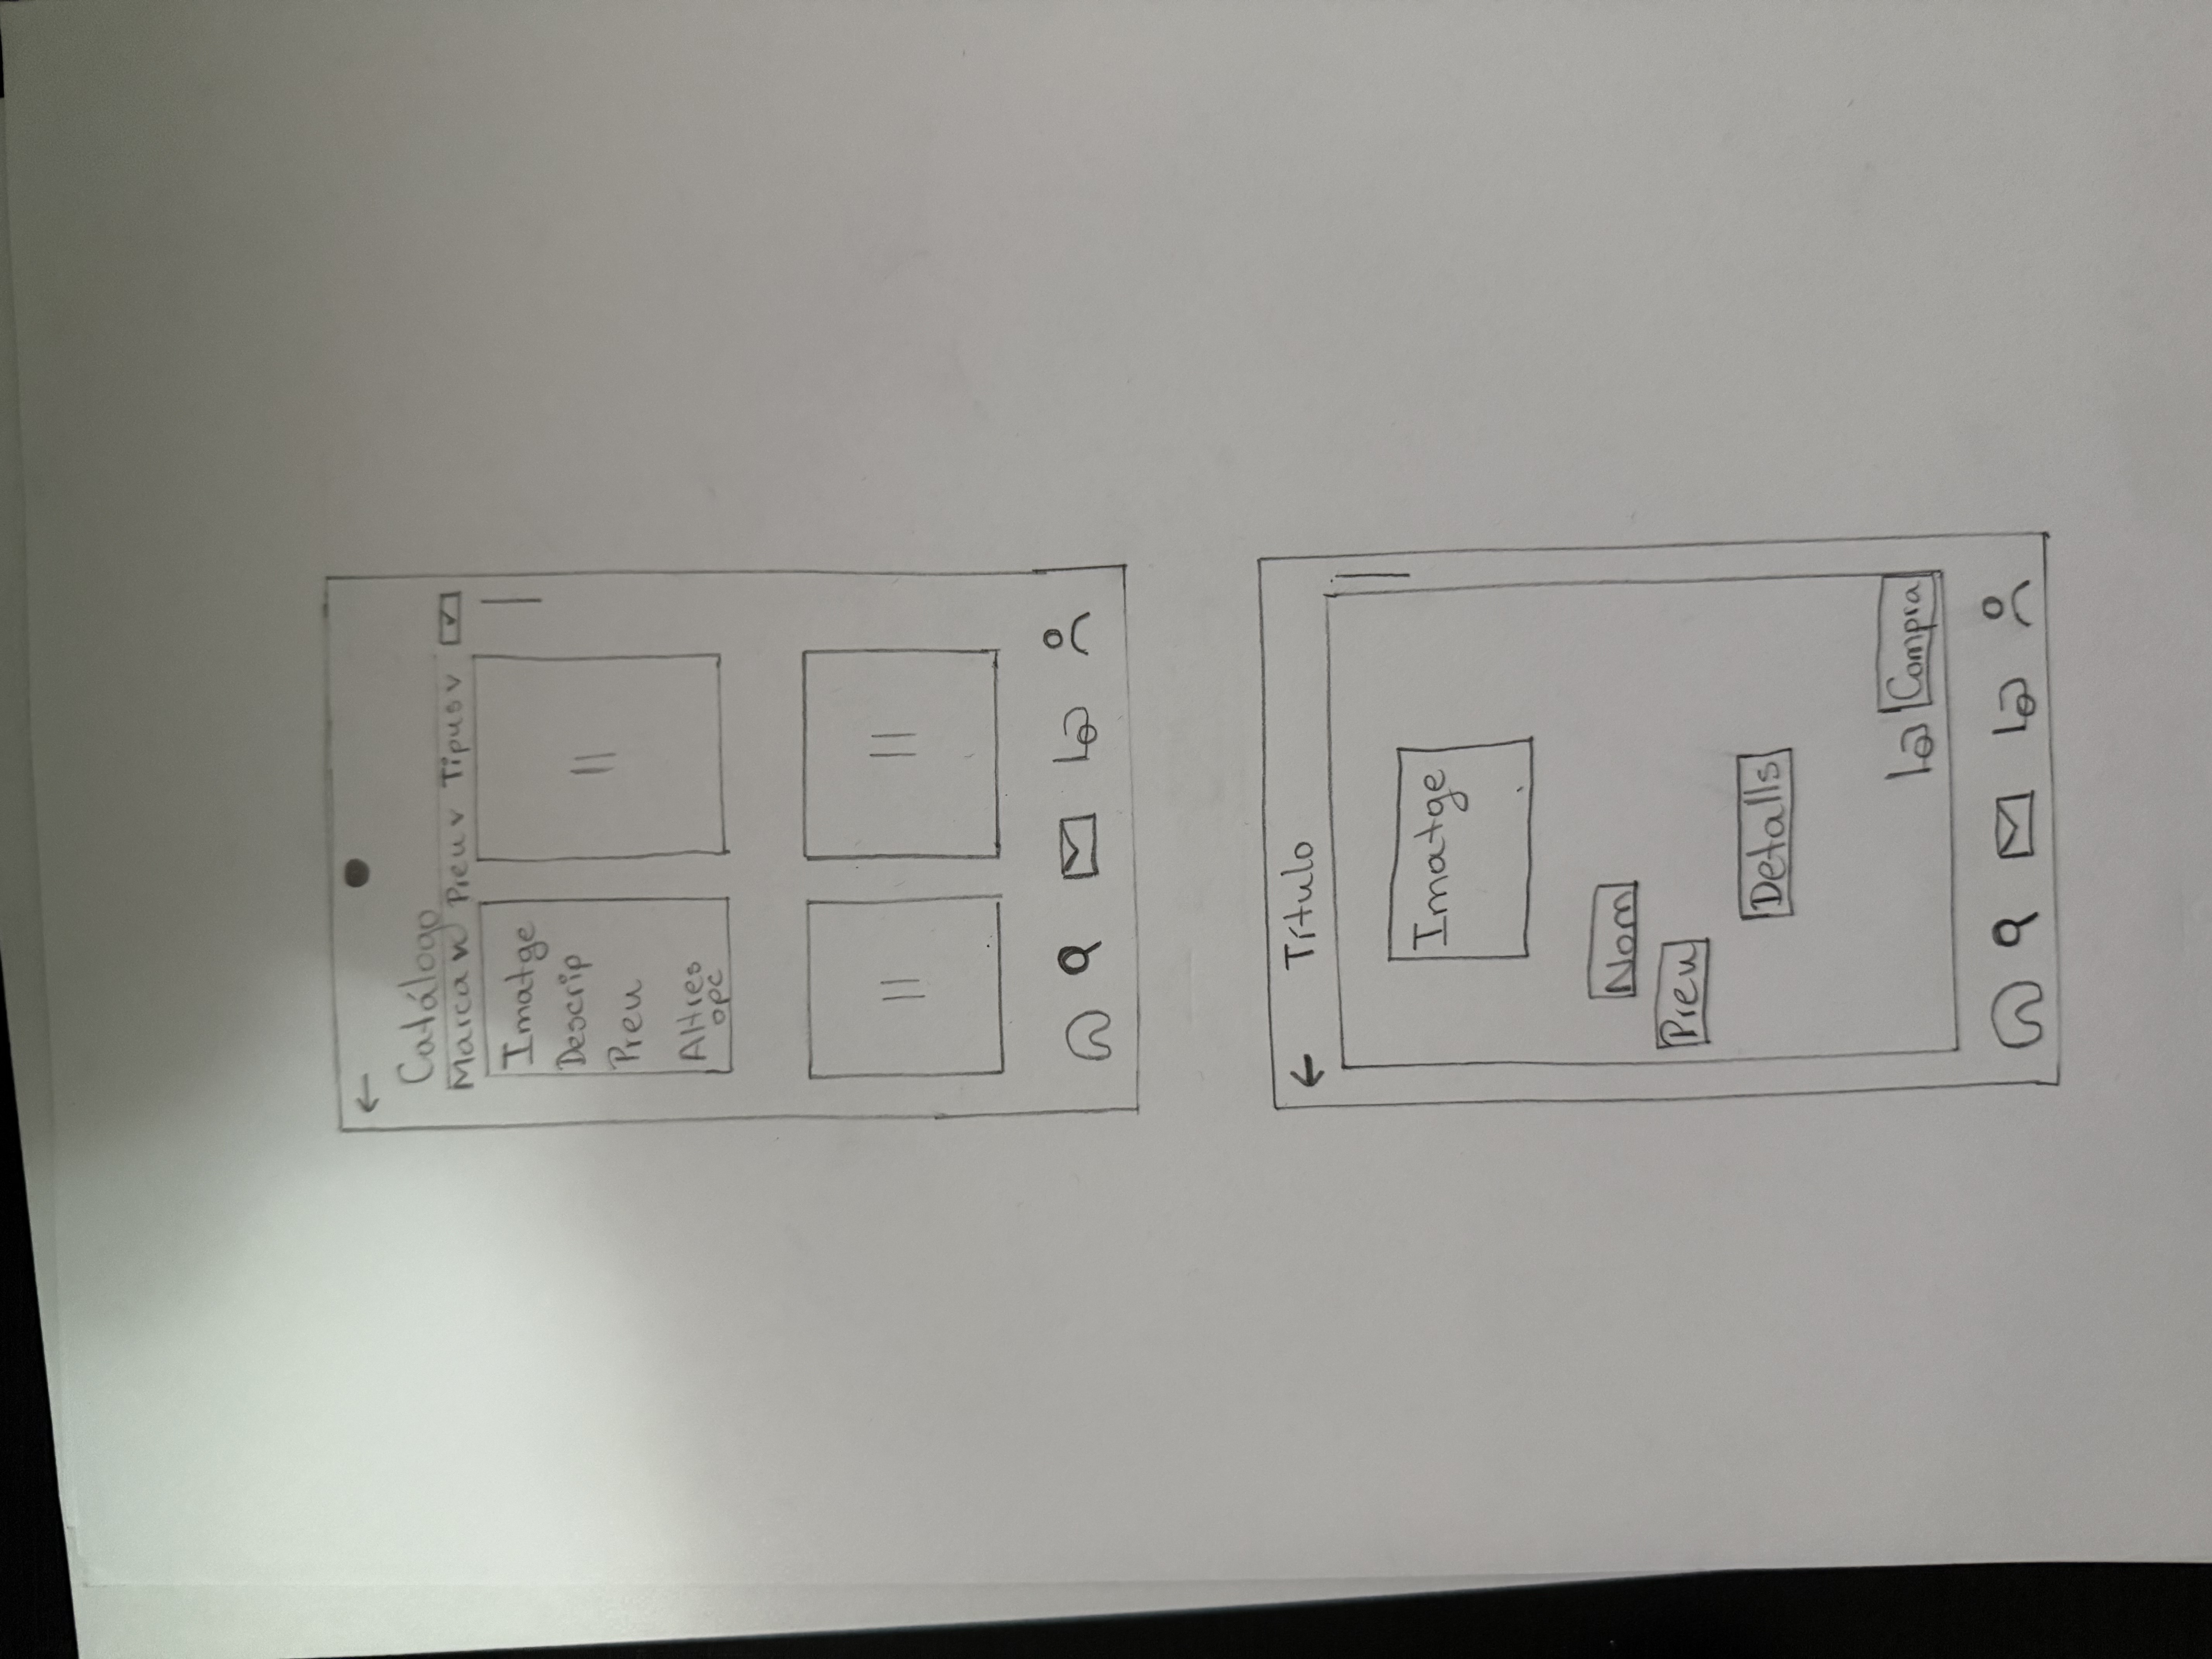 Catálogo
Marca v Preu v Tipus v
Imatge
Descrip
Preu
Altres
opc
||
||
||
Título
Imatge
Nom
Preu
Detalls
Compra